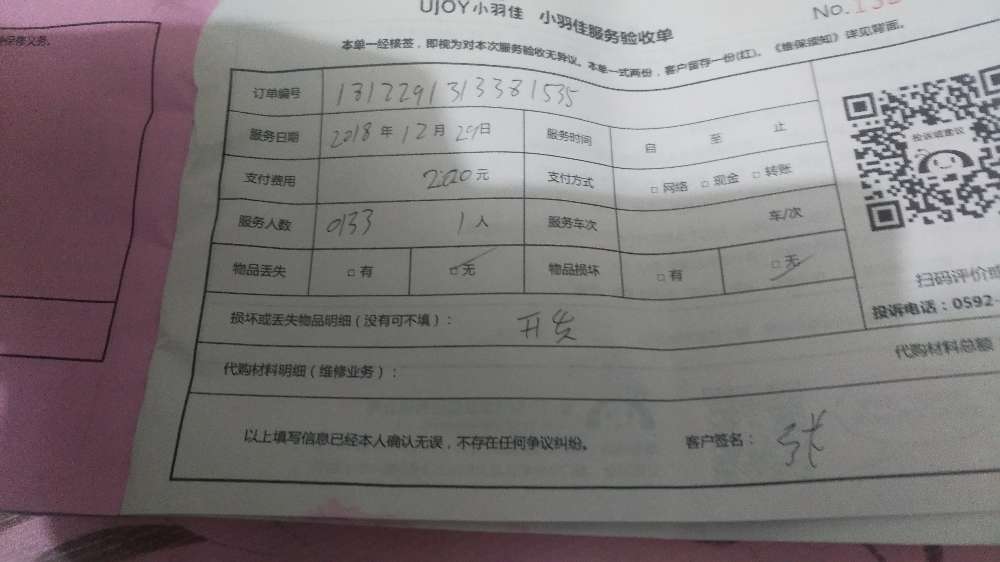 UJOY小羽佳 小羽佳服务验收单
No.132
本单一经核签，即视为对本次服务验收无异议。本单一式两份，客户留存一份(红)。《维保须知》详见背面。
保修义务。
订单编号 1812291313381535
服务日期 2018年12月29日 服务时间 自 至 止
支付费用 200元 支付方式 □网络 □现金 □转账
服务人数 0133 1人 服务车次 车/次
物品丢失 □有 □无 物品损坏 □有 □无
投诉或建议
扫码评价或
投诉电话：0592-
损坏或丢失物品明细（没有可不填）：
代购材料明细（维修业务）： 代购材料总额
以上填写信息已经本人确认无误，不存在任何争议纠纷。 客户签名：张